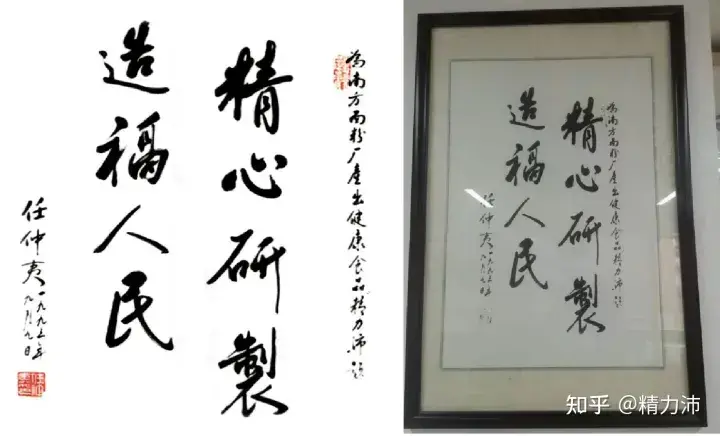 為南方面粉厂產出健康食品精力沛題
精心研製
造福人民
任仲夷
九月九日
為南方面粉厂產出健康食品精力沛題
精心研製
造福人民
任仲夷
知乎 @精力沛